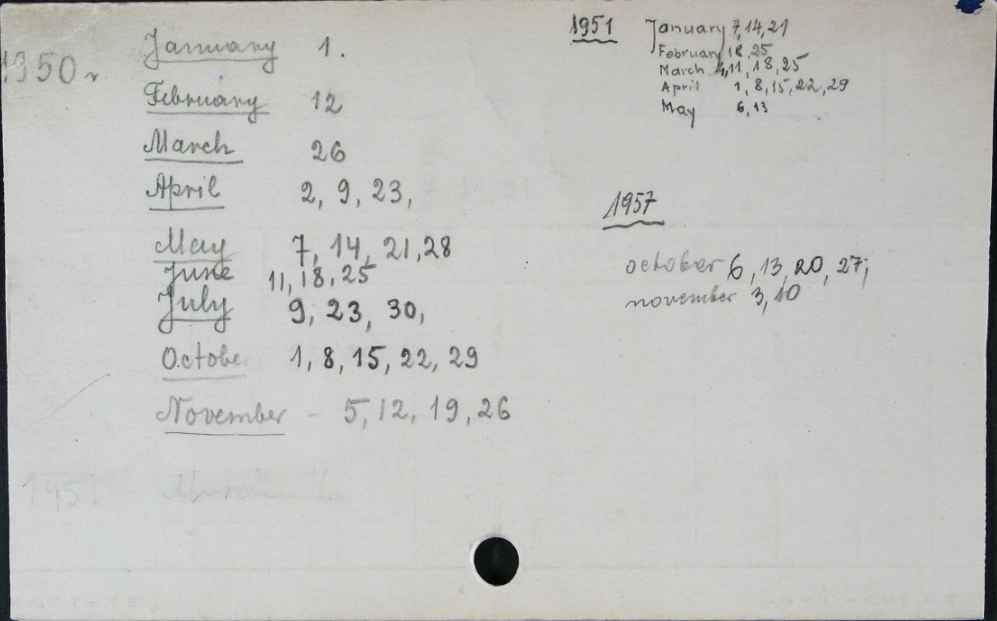 1950r
January 1.
February 12
March 26
April 2, 9, 23,
May 7, 14, 21, 28
June 11, 18, 25
July 9, 23, 30,
Octobe 1, 8, 15, 22, 29
November - 5, 12, 19, 26
1951
1951 January 7, 14, 21
February 18, 25
March 4, 11, 18, 25
April 1, 8, 15, 22, 29
May 6, 13
1957
october 6, 13, 20, 27,
november 3, 10